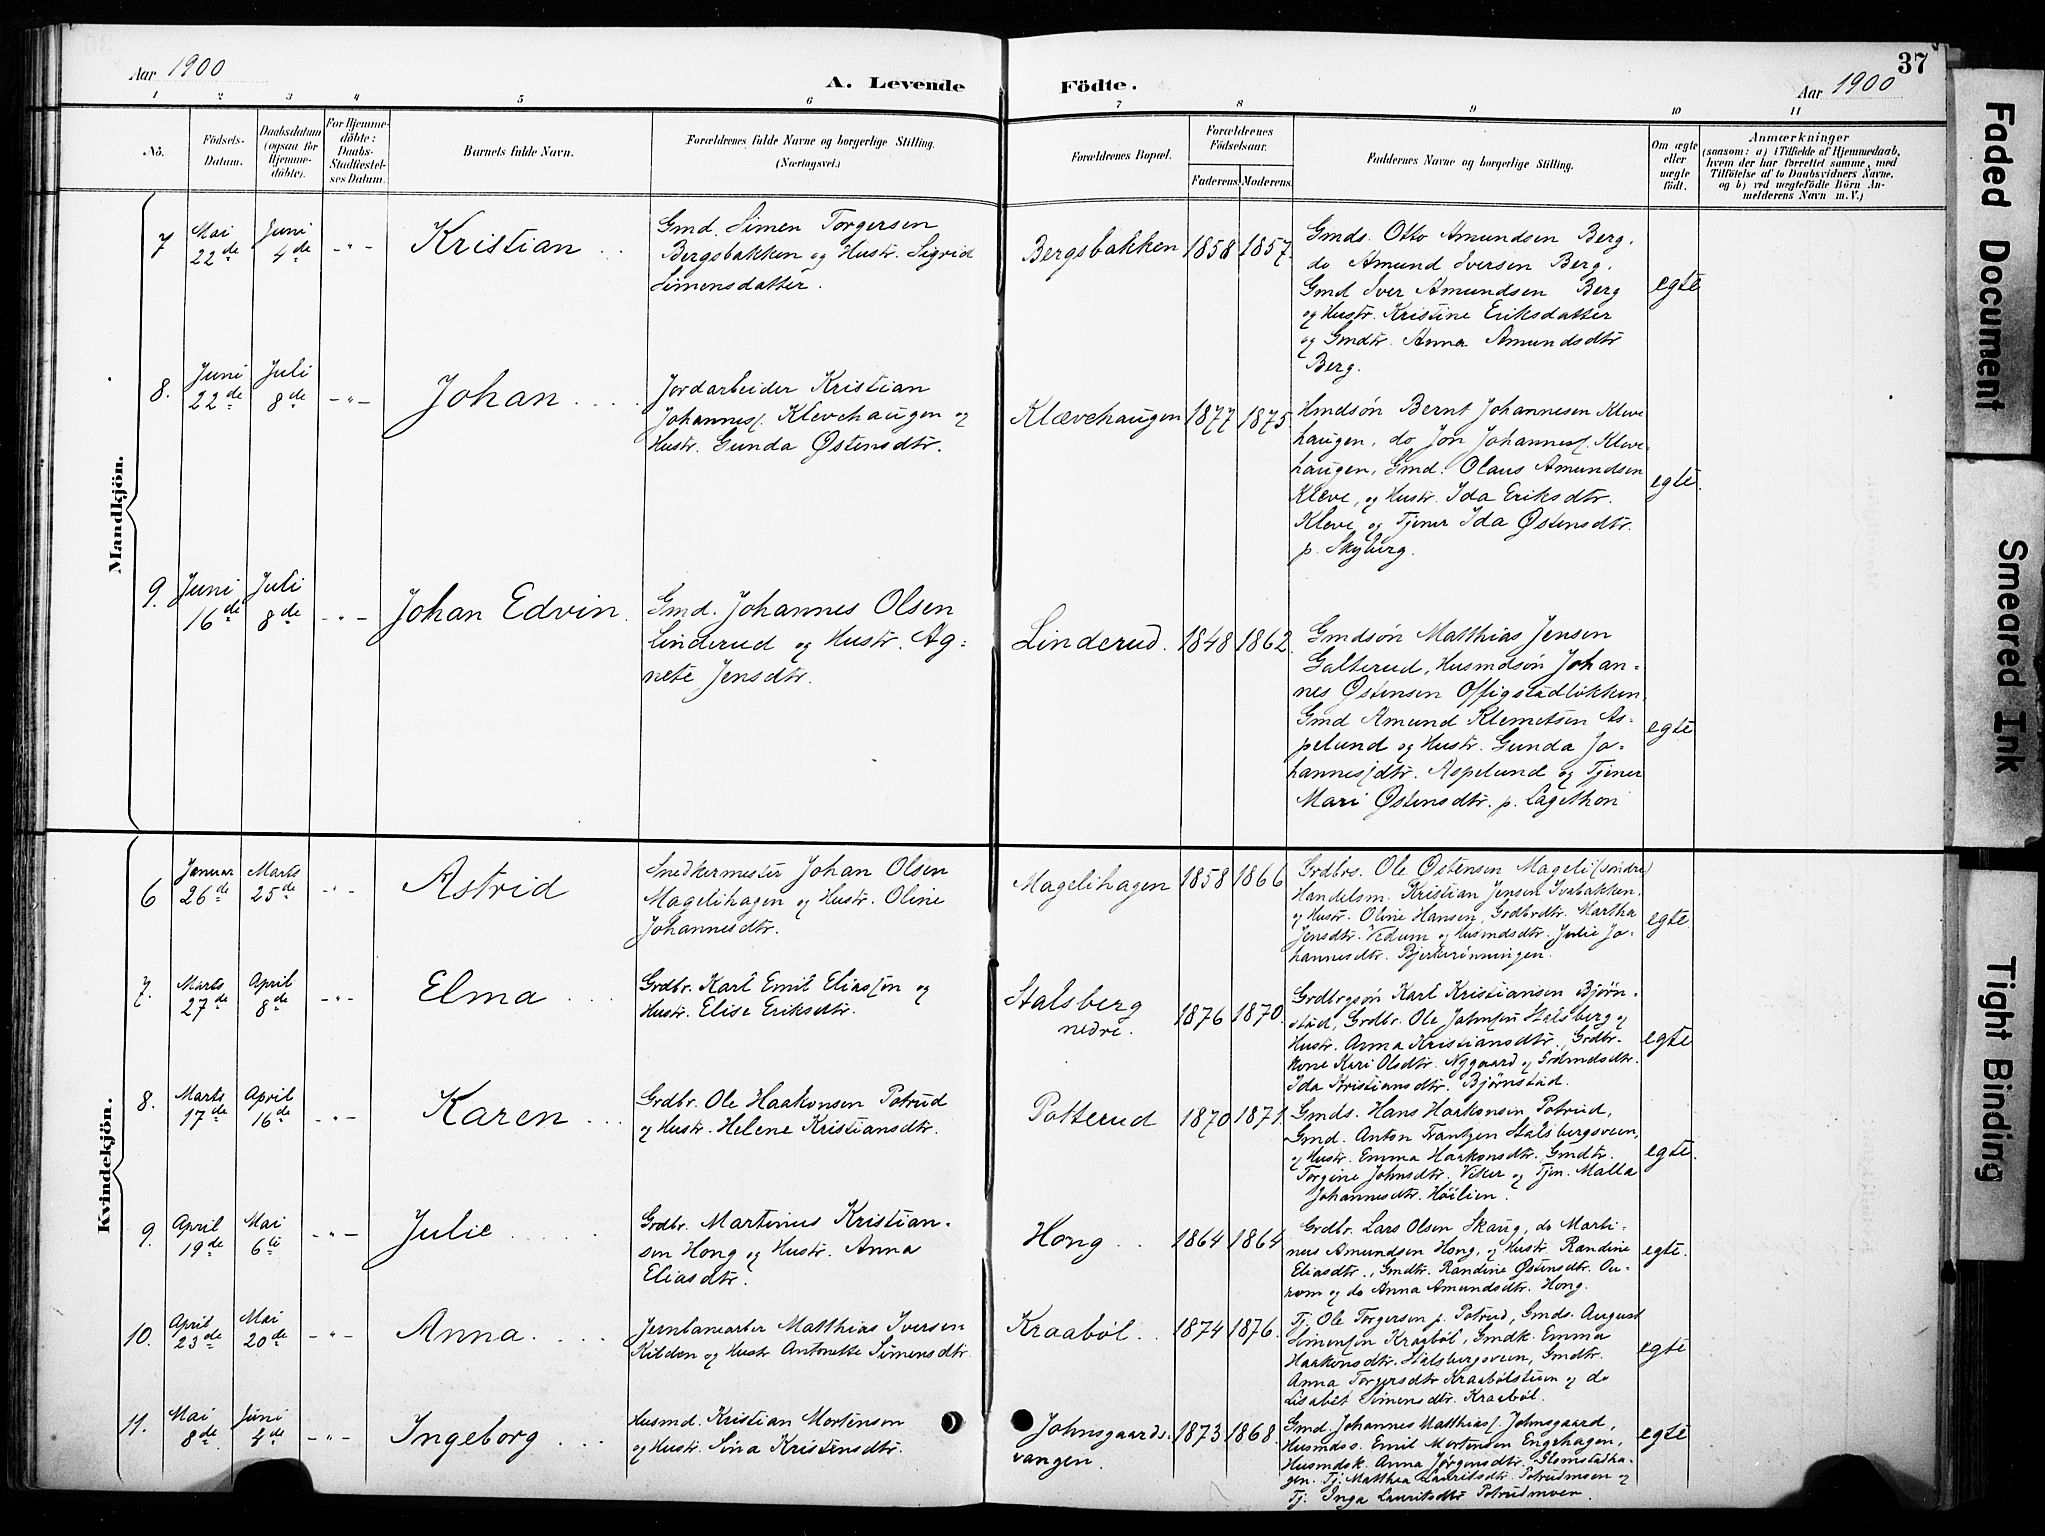 Aar 1900
A. Levende
Födte.
Aar 1900
37
1 2 3 4 5 6 7 8 9 10 11
No.
Födsels-
Datum.
Daabsdatum
(ogsaa for
Hjemme-
döbte).
For Hjemme-
döbte:
Daabs-
Stadfæstel-
ses Datum.
Barnets fulde Navn.
Forældrenes fulde Navne og borgerlige Stilling.
(Næringsvei.)
Forældrenes Bopæl.
Forældrenes
Födselsaar.
Faderens. Moderens.
Faddernes Navne og borgerlige Stilling.
Om ægte
eller
uægte
födt.
Anmærkninger
(saasom: a) i Tilfælde af Hjemmedaab,
hvem der har forrettet samme, med
Tilföielse af to Daabsvidners Navne.
og b) ved uægtefödte Börn An-
melderens Navn m. V.)
Mandkjön.
7
Mai
22de
Juni
4de
-"-
Kristian
Gmd. Simen Torgersen
Bergsbakken og Hustr. Sigrid
Simensdatter.
Bergsbakken
1858
1857.
Gmds. Otto Amundsen Berg.
do Amund Iversen Berg.
Gmd Iver Amundsen Berg
og Hustr. Kristine Eriksdatter
og Gmdtr. Anna Amundsdtr
Berg.
egte
8.
Juni
22de
Juli
8de
-"-
Johan
Jordarbeider Kristian
Johannes. Klevehaugen og
Hustr. Gunda Østensdtr.
Klævehaugen
1877
1875
Hmdsøn Bernt Johannesen Kleve
haugen, do Jon Johannes. Kleve-
haugen, Gmd. Olaus Amundsen
Kleve, og Hustr. Ida Eriksdtr.
Kleve, og Tjener Ida Østensdtr.
p. Skyberg.
egte.
9.
Juni
16de
Juli
8de
-"-
Johan Edvin.
Gmd. Johannes Olsen
Linderud og Hustr. Ag-
nete Jensdtr.
Linderud.
1848
1862.
Gmdsøn Matthias Jensen
Galterud, Husmdsøn Johan-
nes Østensen Offigstadløkken,
Gmd Amund Klemetsen As-
pelund og Hustr. Gunda Jo-
hannesdtr. Aspelund og Tjener
Mari Østensdtr. p. Lagethon
egte
Kvindekjön.
6
Januar
26de
Marts
25de
-"-
Astrid
Snedkermester Johan Olsen
Magelihagen og Hustr. Oline
Johannesdtr.
Magelihagen
1858
1866
Grdbrs. Ole Østensen Mageli (søndre)
Handelsm. Kristian Jensen Ivabakken.
og Hustr. Oline Hansen, Grdbrdtr. Martha
Jensdtr. Vedum og Husmdsdtr. Julie Jo-
hannesdtr. Bjerkerønningen.
egte
7.
Marts
27de
April
8de
-"-
Elma
Grdbr. Karl Emil Eliassøn og
Hustr. Elise Eriksdtr.
Stalsberg
nedre.
1876
1870.
Grdbrgsøn Karl Kristiansen Bjørn-
stad, Grdbr. Ole Johnsen Stalsberg og
Hustr. Anna Kristiansdtr., Grdbr.
Kone Kari Olsdtr. Nygaard og Grdmdsdtr.
Ida Kristiansdtr. Bjørnstad.
egte
8.
Marts
17de
April
16de
-"-
Karen
Grdbr. Ole Haakonsen Potrud
og Hustr. Helene Kristiansdtr.
Potterud
1870
1871.
Gmds. Hans Haakonsen Potrud,
Gmd. Anton Frantzen Stalsbergsveen,
og Hustr. Emma Haakonsdtr. Gmdtr.
Torgine Johnsdtr. Viker og Tjen. Malla
Johannesdtr. Høilien.
egte.
9.
April
19de
Mai
6te
-"-
Julie
Grdbr. Martinus Kristian-
sen Hong og Hustr. Anna
Eliasdtr.
Hong
1864
1864
Grdbr. Lars Olsen Skaug, do Marti-
nus Amundsen Hong, og Hustr. Randine
Eliasdtr., Gmdtr. Randine Østensdtr. Au-
rom og do Anna Amundsdtr. Hong.
egte.
10.
April
23de
Mai
20de
-"-
Anna
Jernbanearber Matthias Iversen
Kilden og Hustr Antonette Simensdtr.
Kraabøl
1874
1876.
Tj. Ole Torgersen p. Potrud, Gmds. August
Simensen Kraabøl, Gmdk. Emma
Haakonsdtr. Stalsbergsveen, Gmdtr.
Anna Torgersdtr Kraabølstuen og do
Lisabet Simensdtr. Kraabøl.
egte
11.
Mai
8de
Juni
4de
-"-
Ingeborg
Husmd. Kristian Mortenson
og Hustr. Sina Kristensdtr.
Johnsgaards-
vangen.
1873
1868.
Gmd. Johannes Matthias. Johnsgaard,
Husmdss. Emil Mortensen Engehagen,
Husmdsk. Anna Jørgensdtr. Glomstadha-
gen. Tj. Matthea Lauritsdtr. Potrudmoen og
Tj. Inga Lauritsdtr Potrudmoen.
egte
Faded Document
Smeared Ink
Tight Binding